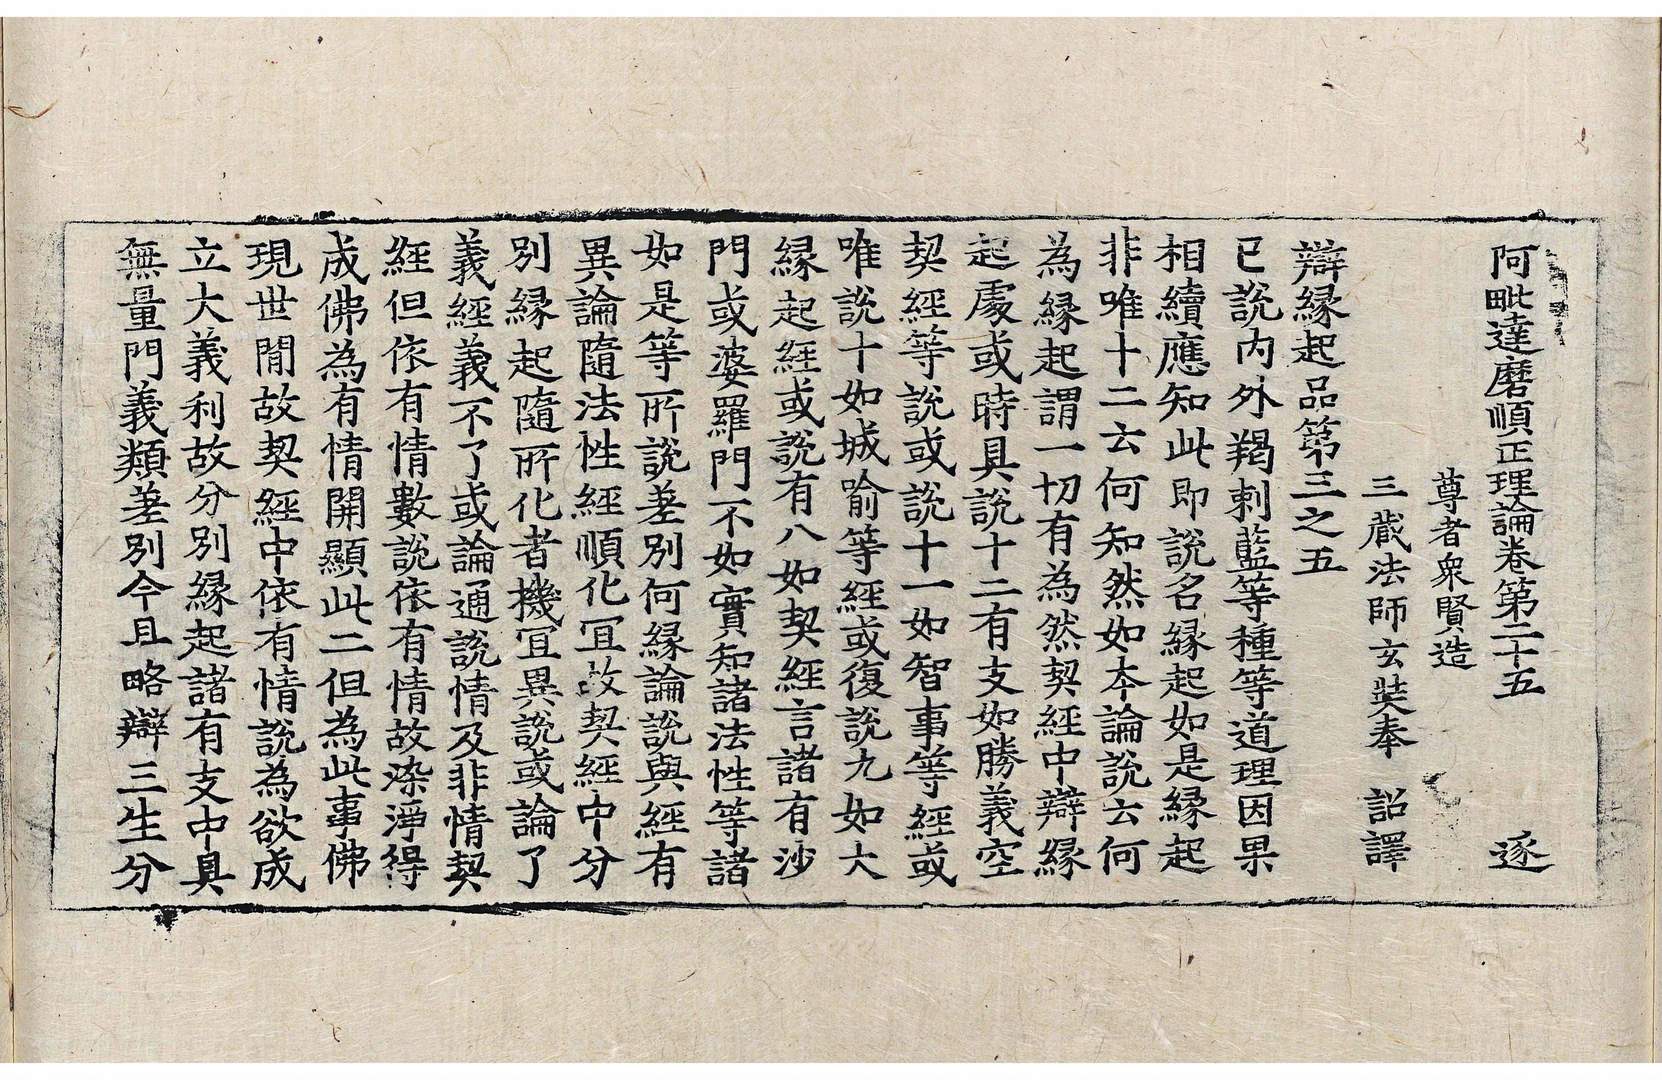 阿毗達磨順正理論卷第二十五 逐
尊者衆賢造
三藏法師玄奘奉 詔譯
辯緣起品第三之五
已說內外羯剌藍等種等道理因果
相續應知此即說名緣起如是緣起
非唯十二云何知然如本論說云何
為緣起謂一切有為然契經中辯緣
起處或時具說十二有支如勝義空
契經等說或說十一如智事等經或
唯說十如城喻等經或復說九如大
緣起經或說有八如契經言諸有沙
門或婆羅門不如實知諸法性等諸
如是等所說差別何緣論說與經有
異論隨法性經順化宜故契經中分
別緣起隨所化者機宜異說或論了
義經義不了或論通說情及非情契
經但依有情數說依有情故染淨得
成佛為有情開顯此二但為此事佛
現世間故契經中依有情說為欲成
立大義利故分別緣起諸有支中具
無量門義類差別今且略辯三生分